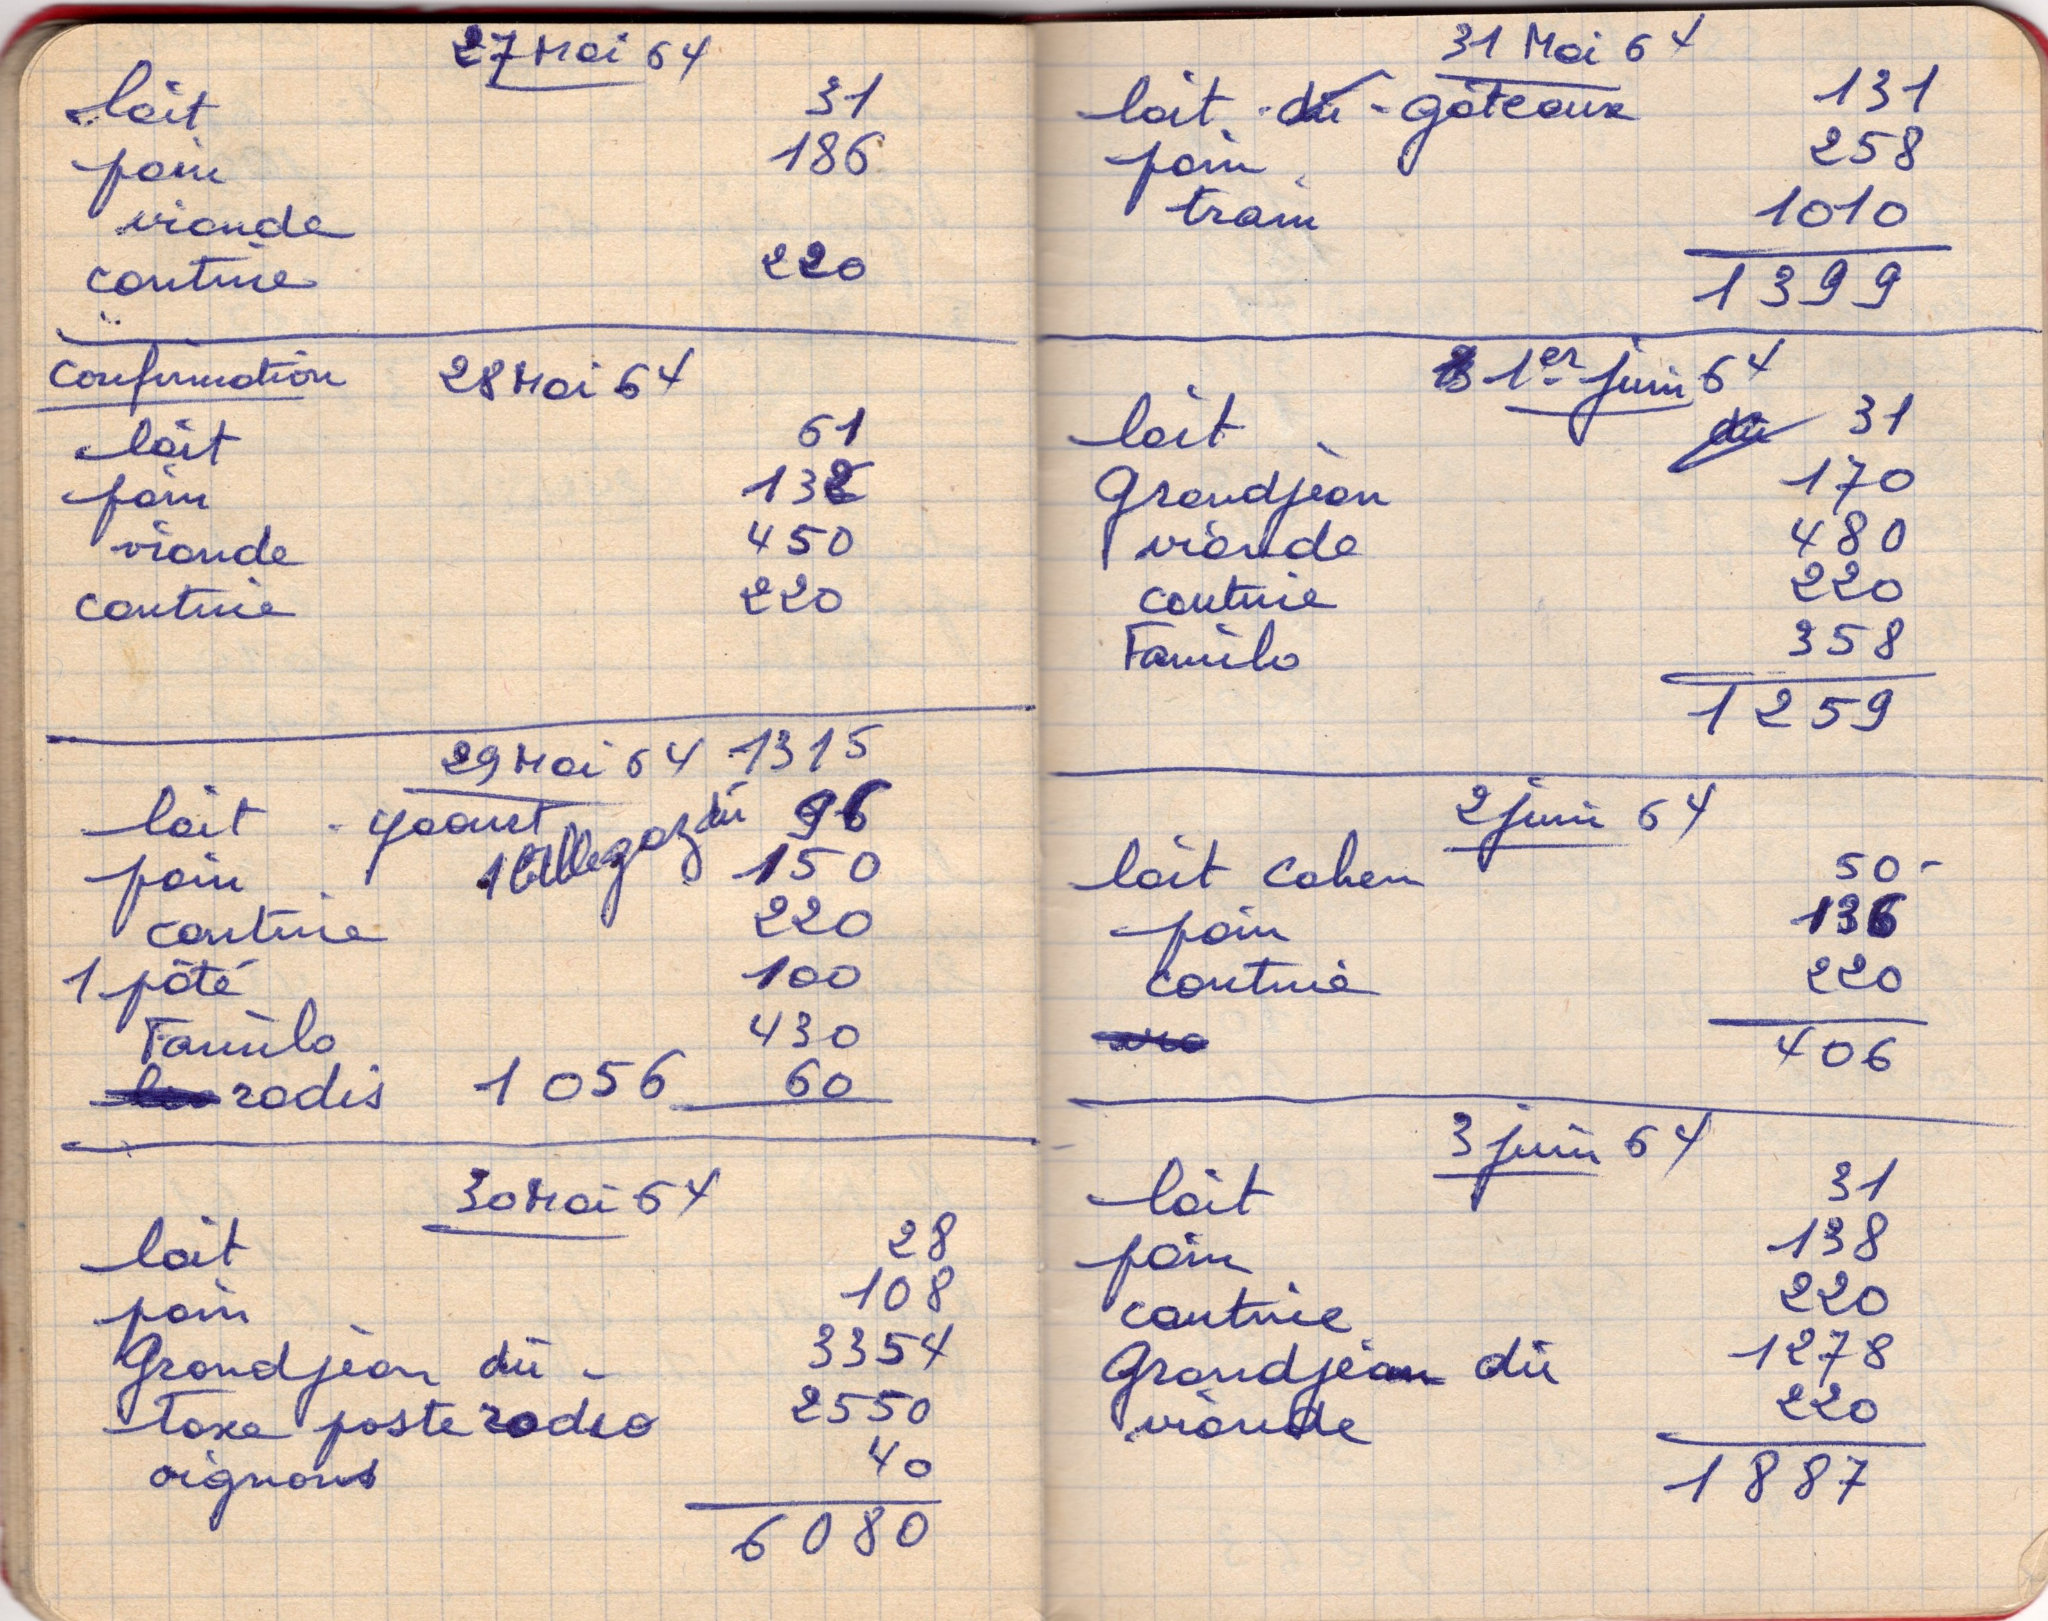 27 Mai 64
lait 31
pain 186
viande
cantine 220
Confirmation 28 Mai 64
lait 61
pain 132
viande 450
cantine 220
29 Mai 64 1315
lait - yaourt dû 96
pain 150
cantine 220
1 pâté 100
Familo 430
radis 1056 60
30 Mai 64
lait 28
pain 108
Grandjean dû - 3354
taxe poste radio 2550
oignons 40
6080
31 Mai 64
lait - dû - gâteaux 131
pain 258
train 1010
1399
1er juin 64
lait dû 31
Grandjean 170
viande 480
cantine 220
Familo 358
1259
2 juin 64
lait Cohen 50-
pain 136
cantine 220
406
3 juin 64
lait 31
pain 138
cantine 220
Grandjean dû 1278
viande 220
1887